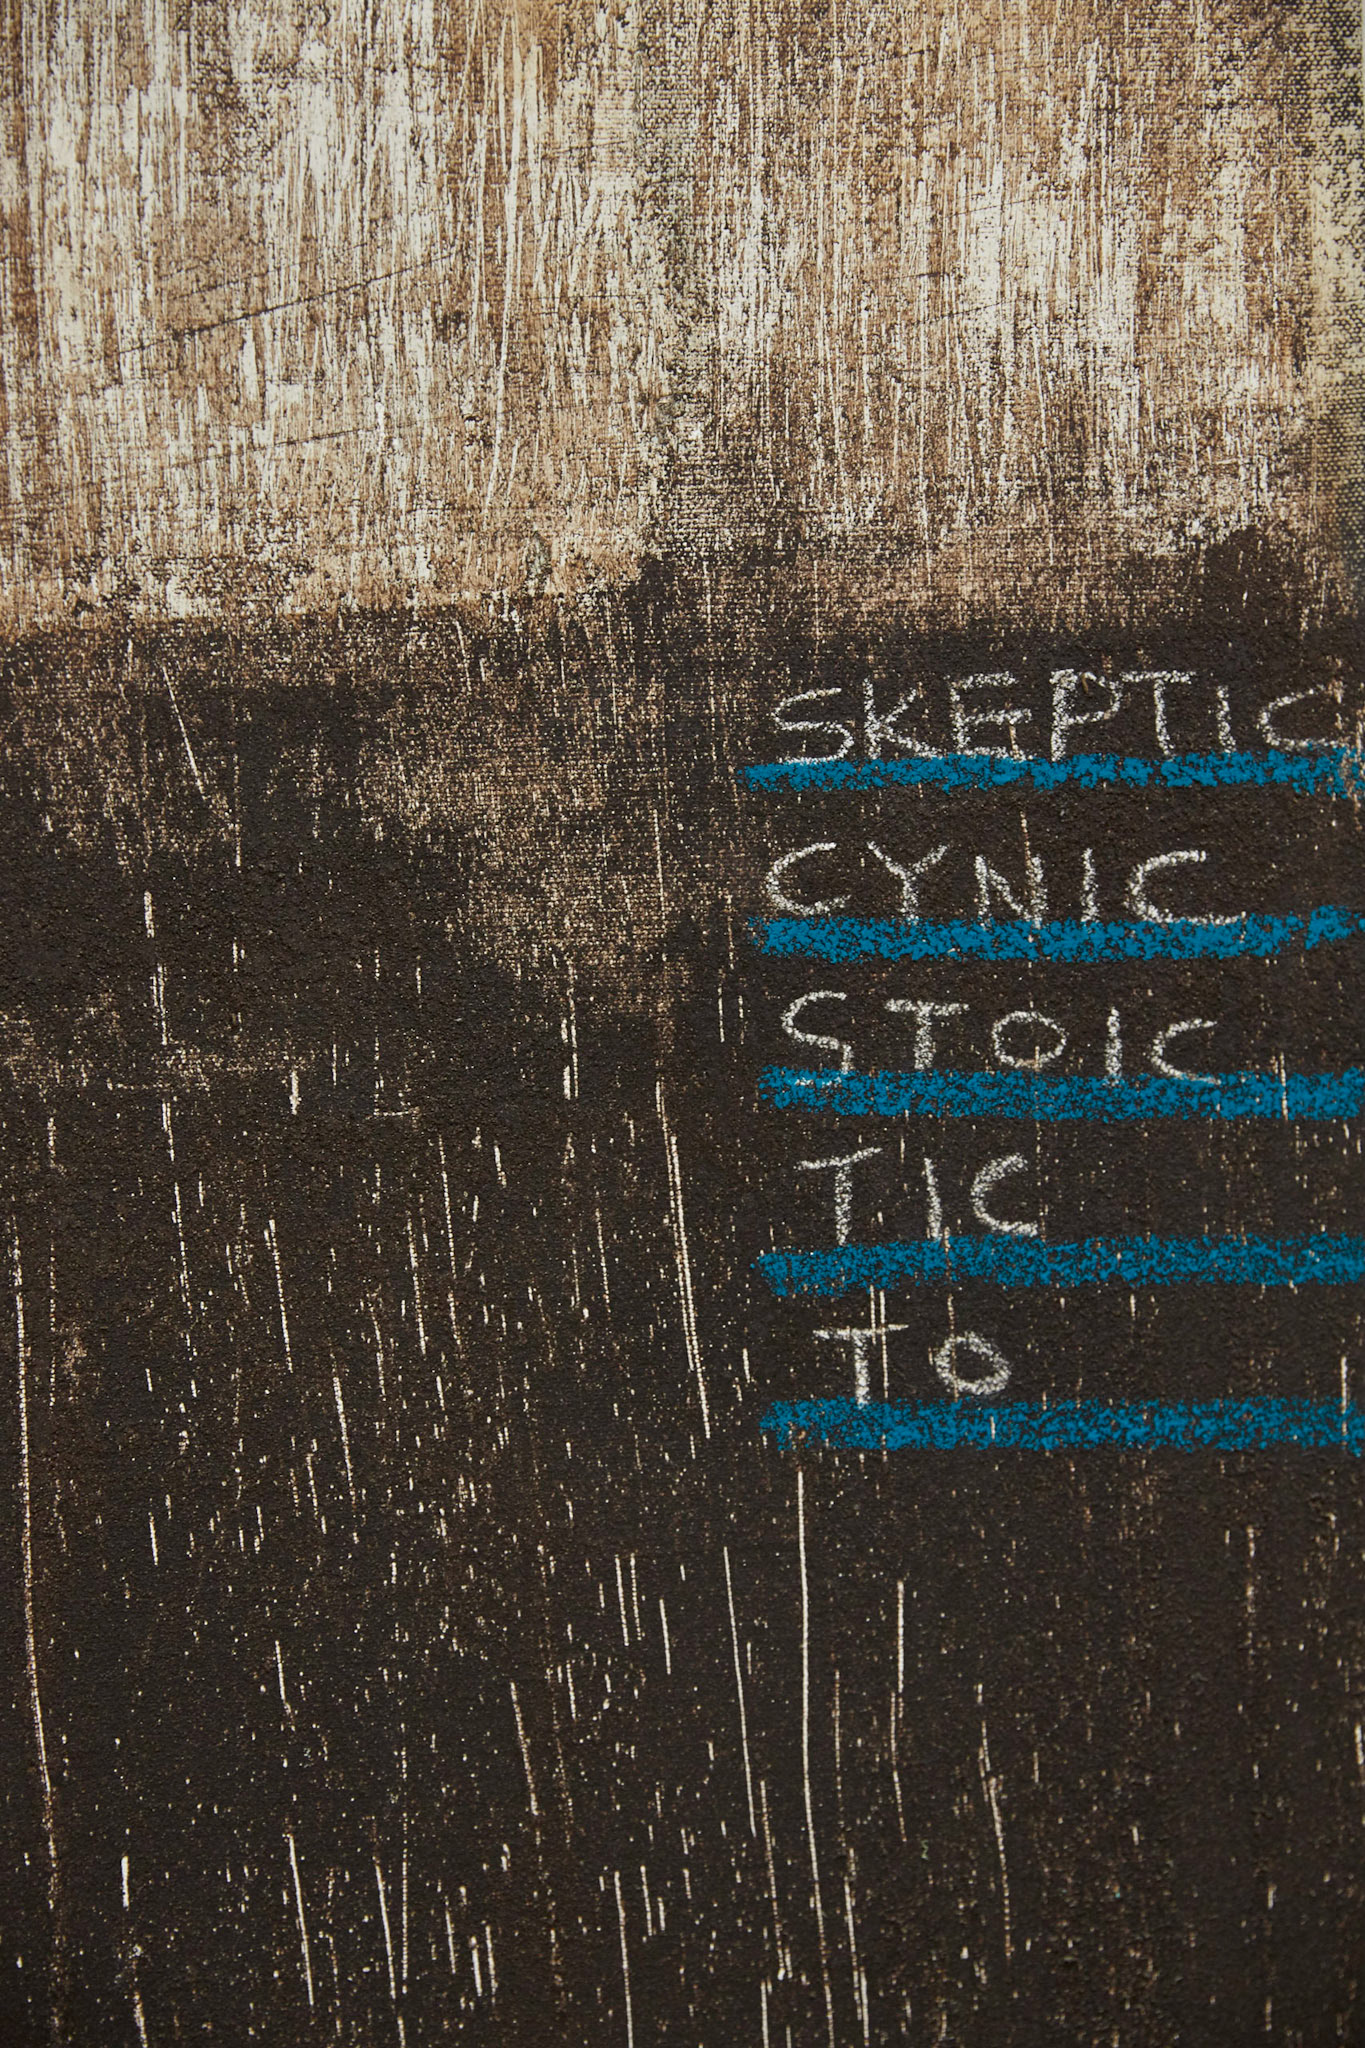 SKEPTIC
CYNIC
STOIC
TIC
TO